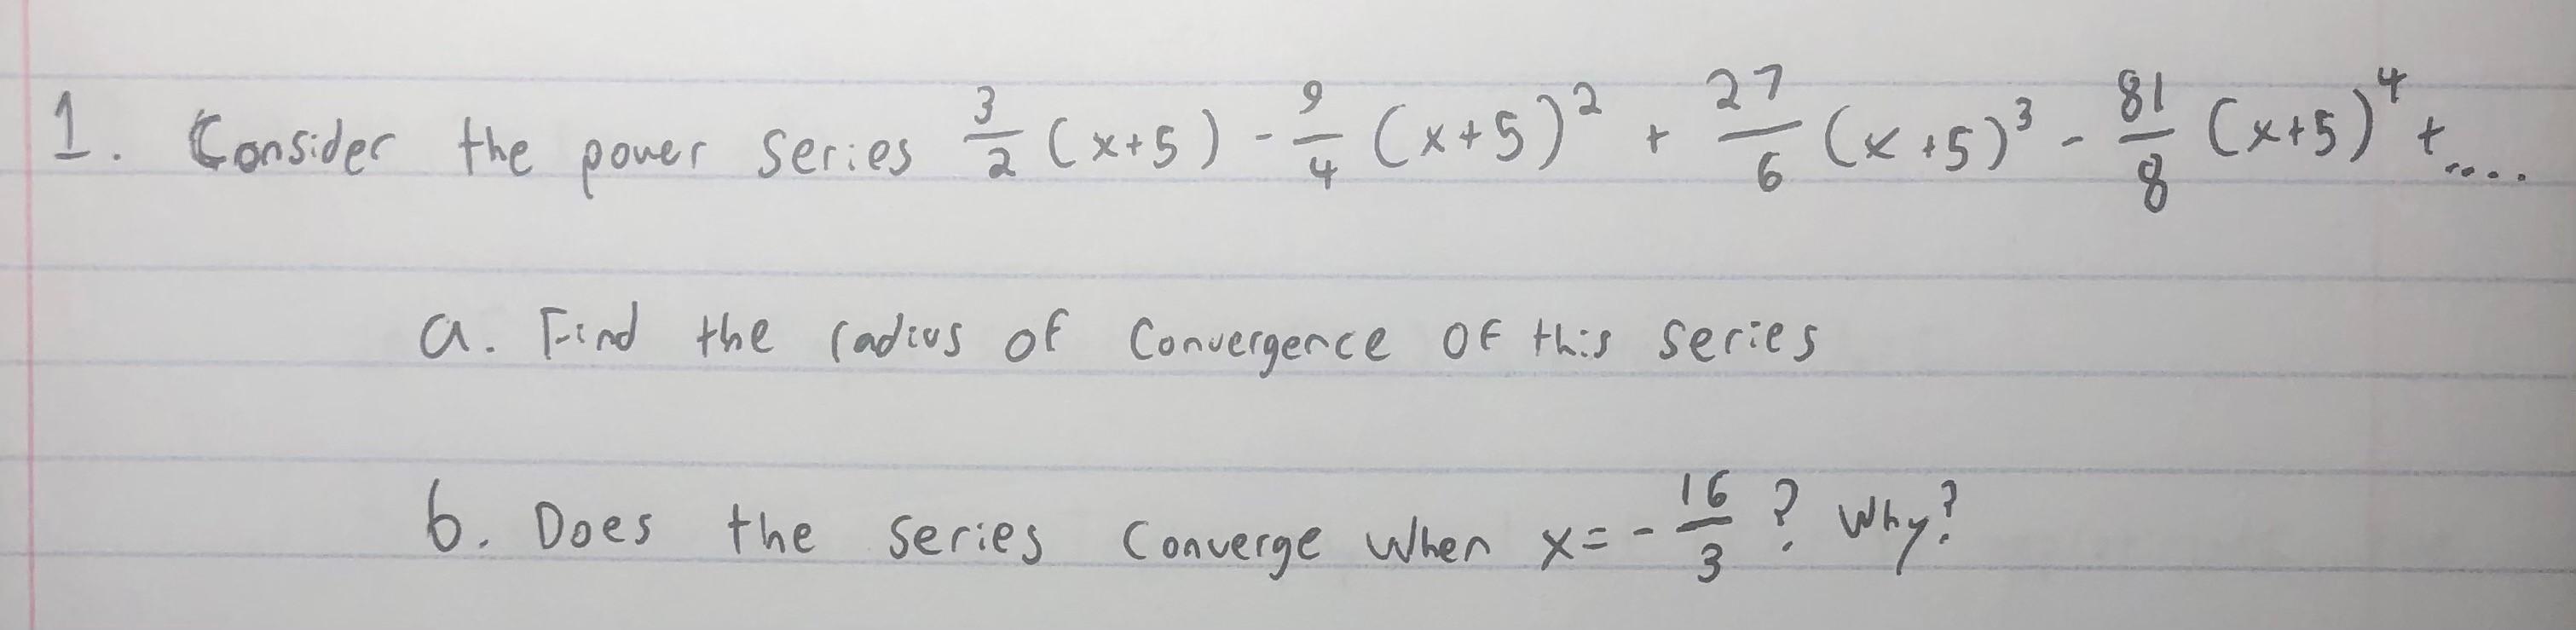 1. Consider the power series 3/2 (x+5) - 9/4 (x+5)² + 27/6 (x+5)³ - 81/8 (x+5)⁴ + .....
a. Find the radius of convergence of this series
b. Does the series converge when x = - 16/3 ? Why?